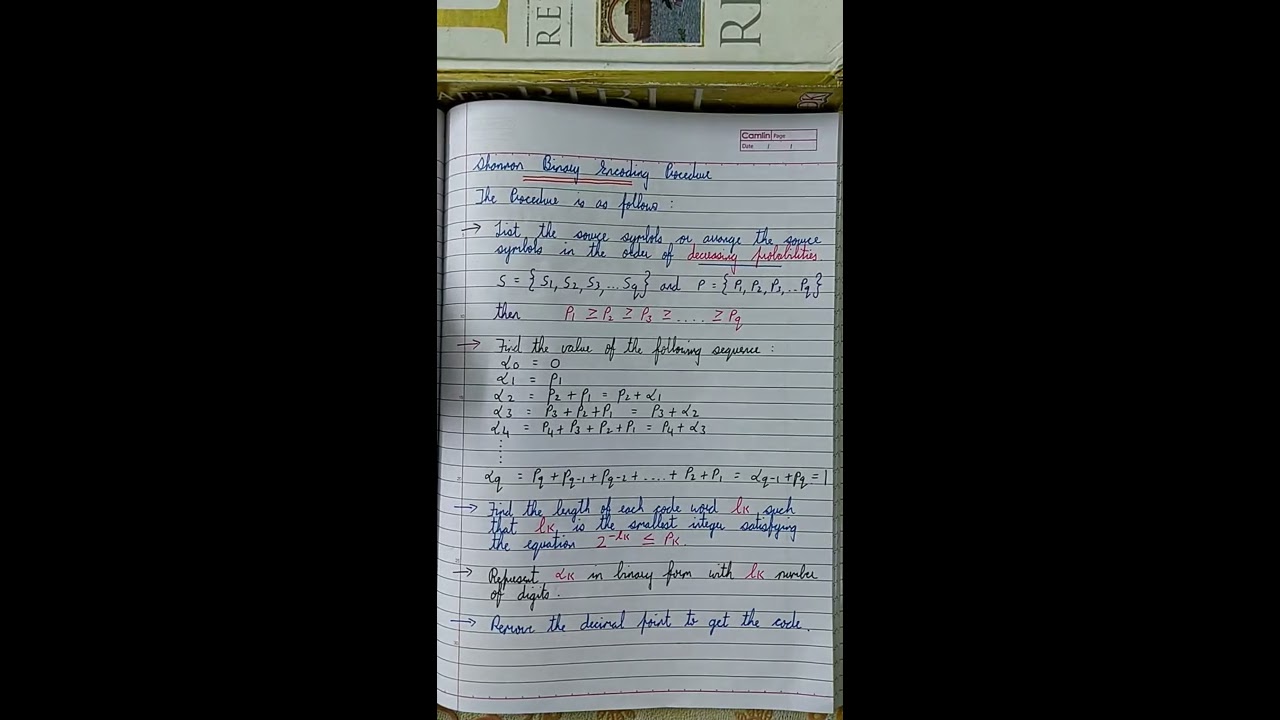 RE
RE
BIBL
Camlin Page
Date / /
Shannon Binary Encoding Procedure
The Procedure is as follows :
→ List the source symbols or arrange the source
symbols in the order of decreasing probabilities
S = { S1, S2, S3, ... Sq } and P = { P1, P2, P3, .. Pq }
then P1 ≥ P2 ≥ P3 ≥ ..... ≥ Pq
→ Find the value of the following sequence :
α0 = 0
α1 = P1
α2 = P2 + P1 = P2 + α1
α3 = P3 + P2 + P1 = P3 + α2
α4 = P4 + P3 + P2 + P1 = P4 + α3
αq = Pq + Pq-1 + Pq-2 + ..... + P2 + P1 = αq-1 + Pq = 1
→ Find the length of each code word lK such
that lK is the smallest integer satisfying
the equation 2^-lK ≤ PK.
→ Represent αK in binary form with lK number
of digits.
→ Remove the decimal point to get the code.